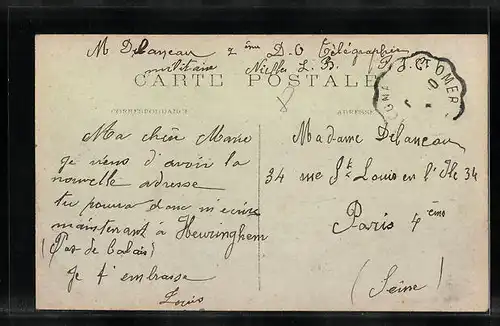 M Delaneau 2ème D.O Télégraphie
militaire
CARTE POSTALE
ST OMER
CORRESPONDANCE
ADRESSE
Ma chère Marie
je viens d'avoir la
nouvelle adresse
tu pourra donc m'écrire
maintenant a Heuringhem
(Pas de Calais)
Je t'embrasse
Louis
Madame Delaneau
34 rue St Louis en l'Ile 34
Paris 4ème
(Seine)